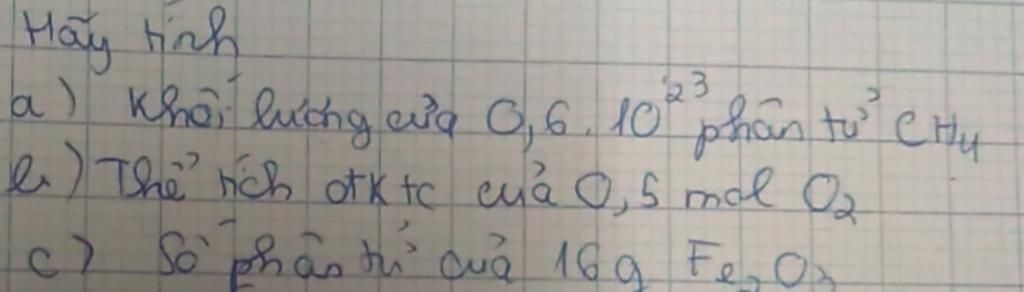 Hãy tính
a) Khối lượng của 0,6. 10²³ phân tử CH₄
b) Thể tích đktc của 0,5 mol O₂
c) Số phân tử của 16 g Fe₂O₃